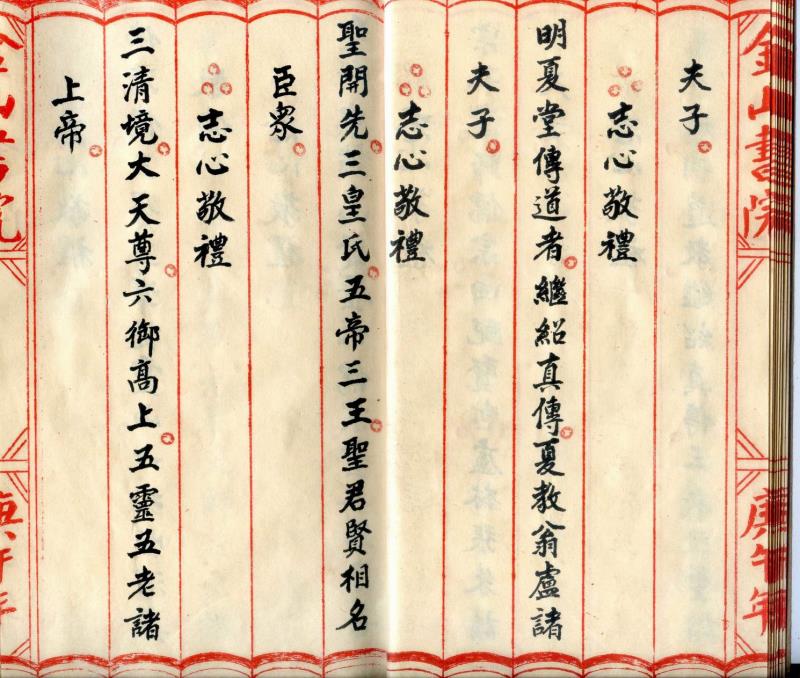 金山書院
庚午年
夫子
志心敬禮
明夏堂傳道者繼紹真傳夏教翁盧諸
夫子
志心敬禮
聖開先三皇氏五帝三王聖君賢相名
臣眾
志心敬禮
三清境大天尊六御高上五靈五老諸
上帝
金山書院
庚午年